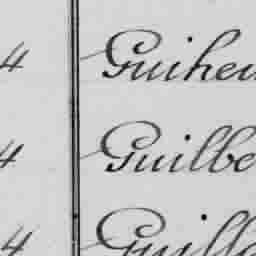 4 Guiheu
4 Guilbe
4 Guill